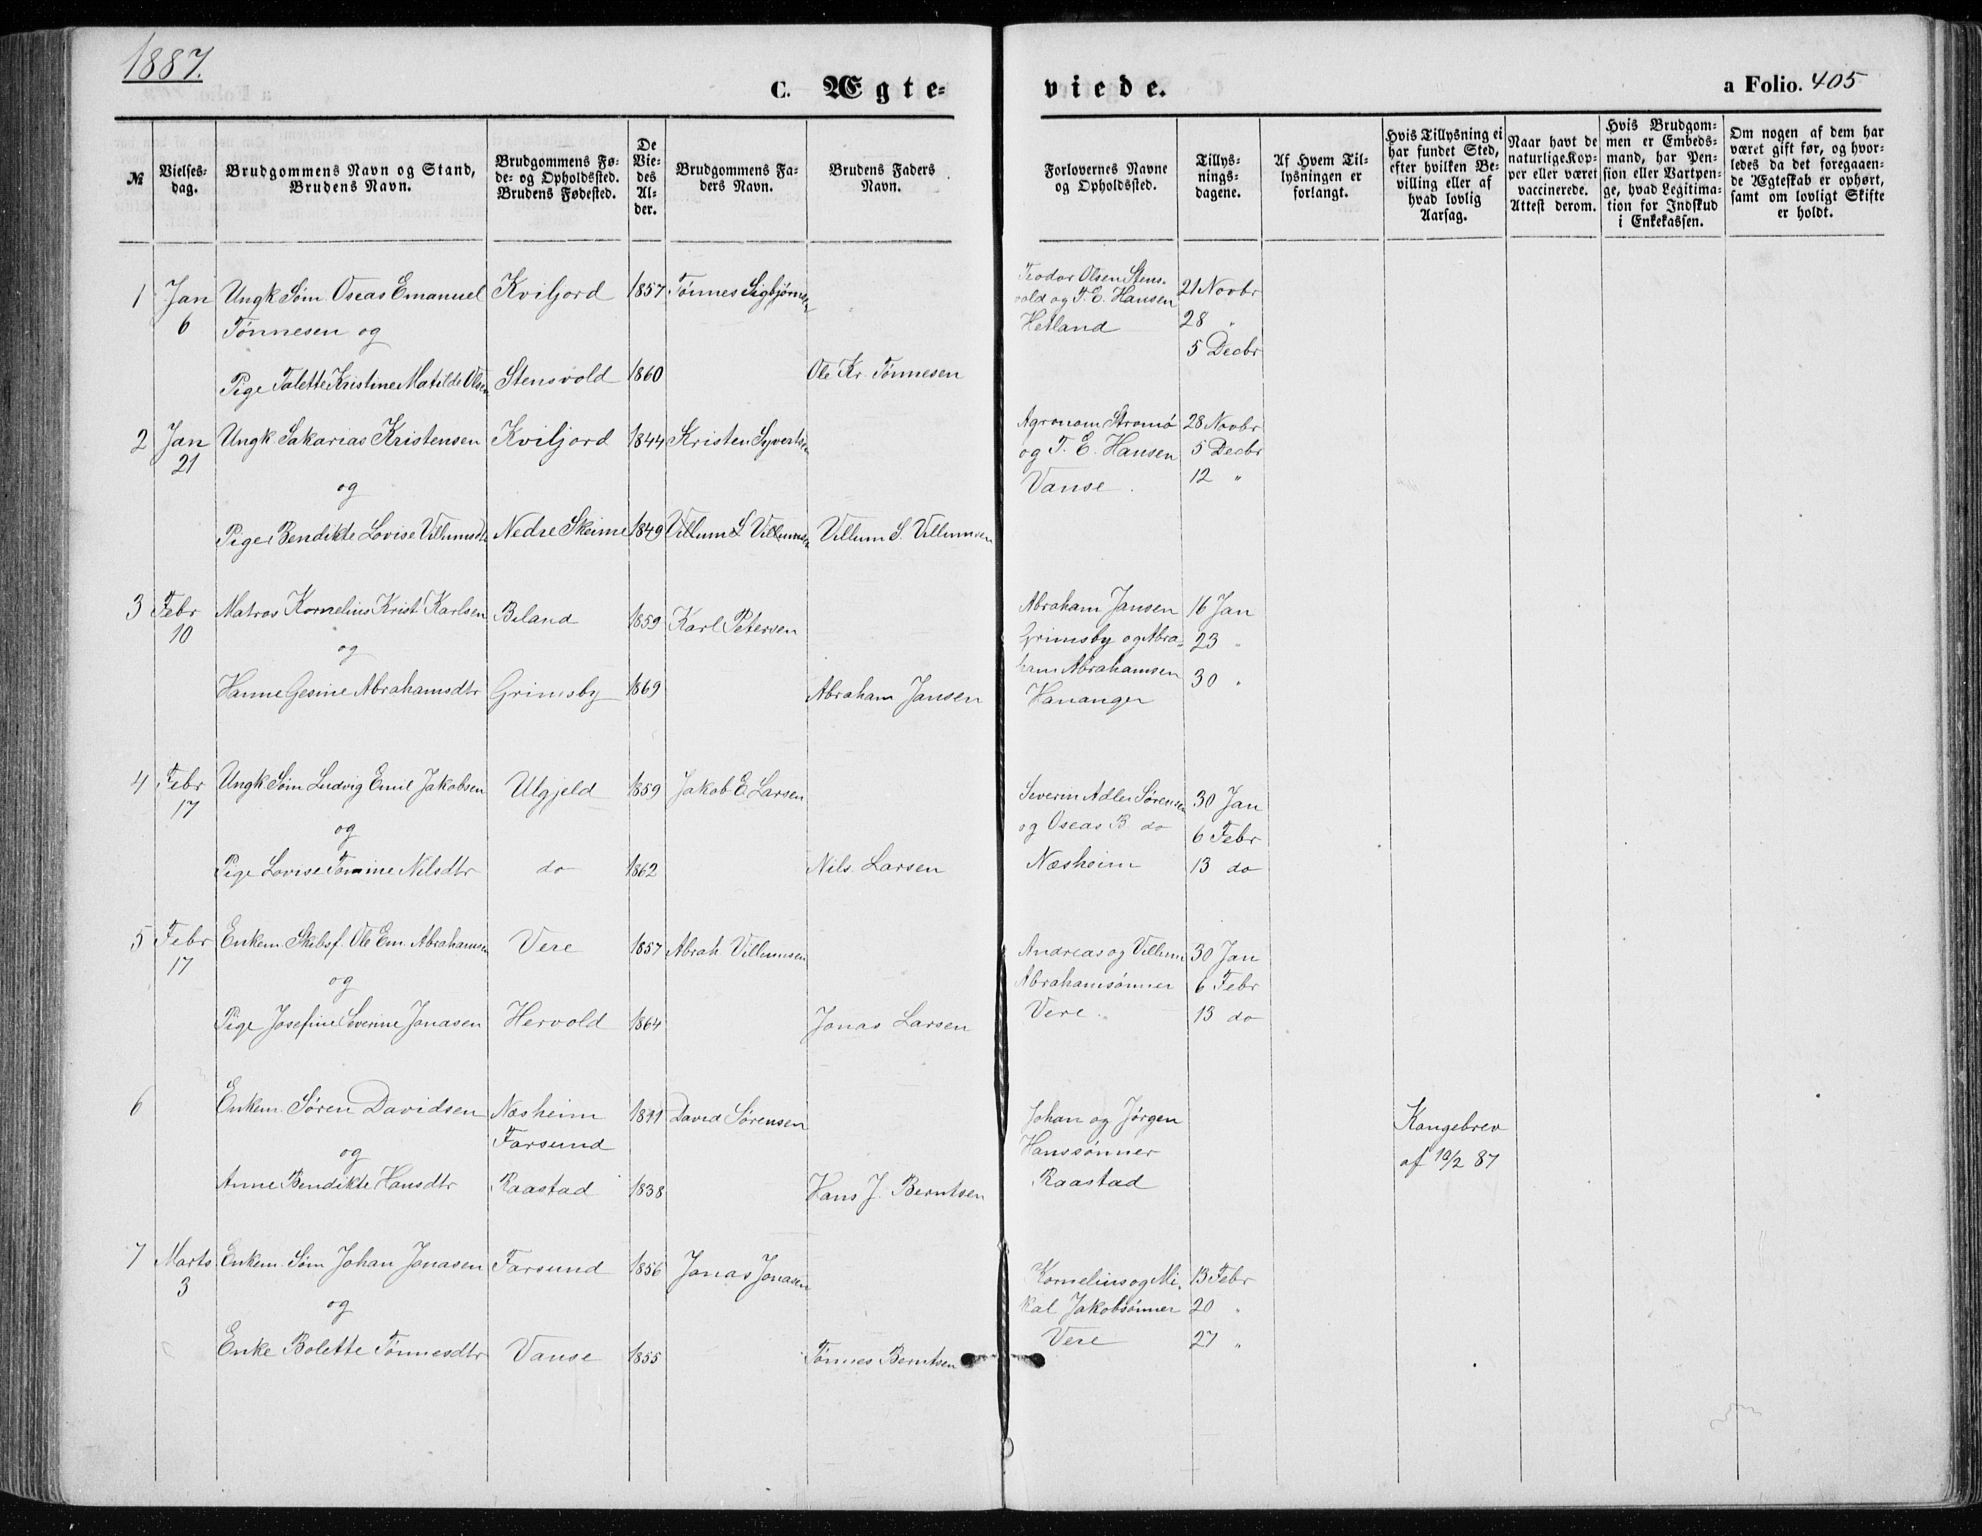 1887.
C. Ægte-
viede.
a Folio. 405
№
Vielses-
dag.
Brudgommens Navn og Stand,
Brudens Navn.
Brudgommens Fø-
de- og Opholdssted.
Brudens Fødested.
De
Vie-
des
Al-
der.
Brudgommens Fa-
ders Navn.
Brudens Faders
Navn.
Forlovernes Navne
og Opholdssted.
Tillys-
nings-
dagene.
Af Hvem Til-
lysningen er
forlangt.
Hvis Tillysning ei
har fundet Sted,
efter hvilken Be-
villing eller af
hvad lovlig
Aarsag.
Naar havt de
naturlige Kop-
per eller været
vaccinerede.
Attest derom.
Hvis Brudgom-
men er Embeds-
mand, har Pen-
sion eller Vartpen-
ge, hvad Legitima-
tion for Indskud
i Enkekassen.
Om nogen af dem har
været gift før, og hvor-
ledes da det foregaaen-
de Ægteskab er ophørt,
samt om lovligt Skifte
er holdt.
1 Jan Ungk Søm Oseas Emanuel Kviljord 1857 Tønnes Sigbjørnsen
6 Tønnesen og
Pige Talette Kristine Matilde Olsen Stensvold 1860 Ole Kr. Tønnesen
Teodor Olsen Stens- 21 Novbr
vold og T. E. Hansen 28 "
Hetland 5 Decbr
2 Jan Ungk Sakarias Kristensen Kviljord 1844 Kristen Syvertsen
21
og
Pige Bendikte Lovise Villumsdtr Nedre Skeime 1849 Villum S Villumsen Villum S. Villumsen
Agronom Strømø 28 Novbr
og T. E. Hansen 5 Decbr
Vanse. 12 "
3 Febr Matros Kornelius Krist Karlsen Biland 1859 Karl Petersen
10
og
Hanne Gesine Abrahamsdtr Grimsby 1869 Abraham Jansen
Abraham Jansen 16 Jan
Grimsby og Abra- 23 "
ham Abrahamsen 30 "
Hananger
4 Febr Ungk Søm Ludvig Emil Jakobsen Ulgjeld 1859 Jakob E Larsen
17
og
Pige Lovise Tomine Nilsdtr do 1862 Nils Larsen
Severin Adler Sørensen 30 Jan
og Oseas B do 6 Febr
Næsheim 13 do
5 Febr Enkem. Skibsf. Ole Em. Abrahamsen Vere 1857 Abrah. Villumsen
17
og
Pige Josefine Severine Jonasen Hervold 1864 Jonas Larsen
Andreas og Villum 30 Jan
Abrahamsønner 6 Febr
Vere. 13 do
6 Enkem. Søren Davidsen Næsheim David Sørensen
Farsund
og
Anne Bendikte Hansdtr Raastad 1838 Hans J. Berntsen
Johan og Jørgen
Hanssønner
Raastad
Kongebrev
af 10/2 87
7 Marts Enkem. Søm Johan Jonasen Farsund 1856 Jonas Jonasen
3
og
Enke Bolette Tønnesdtr Vanse 1855 Tønnes Berntsen
Kornelius og Mi- 13 Febr
kal Jakobsønner 20 "
Vere 27 "